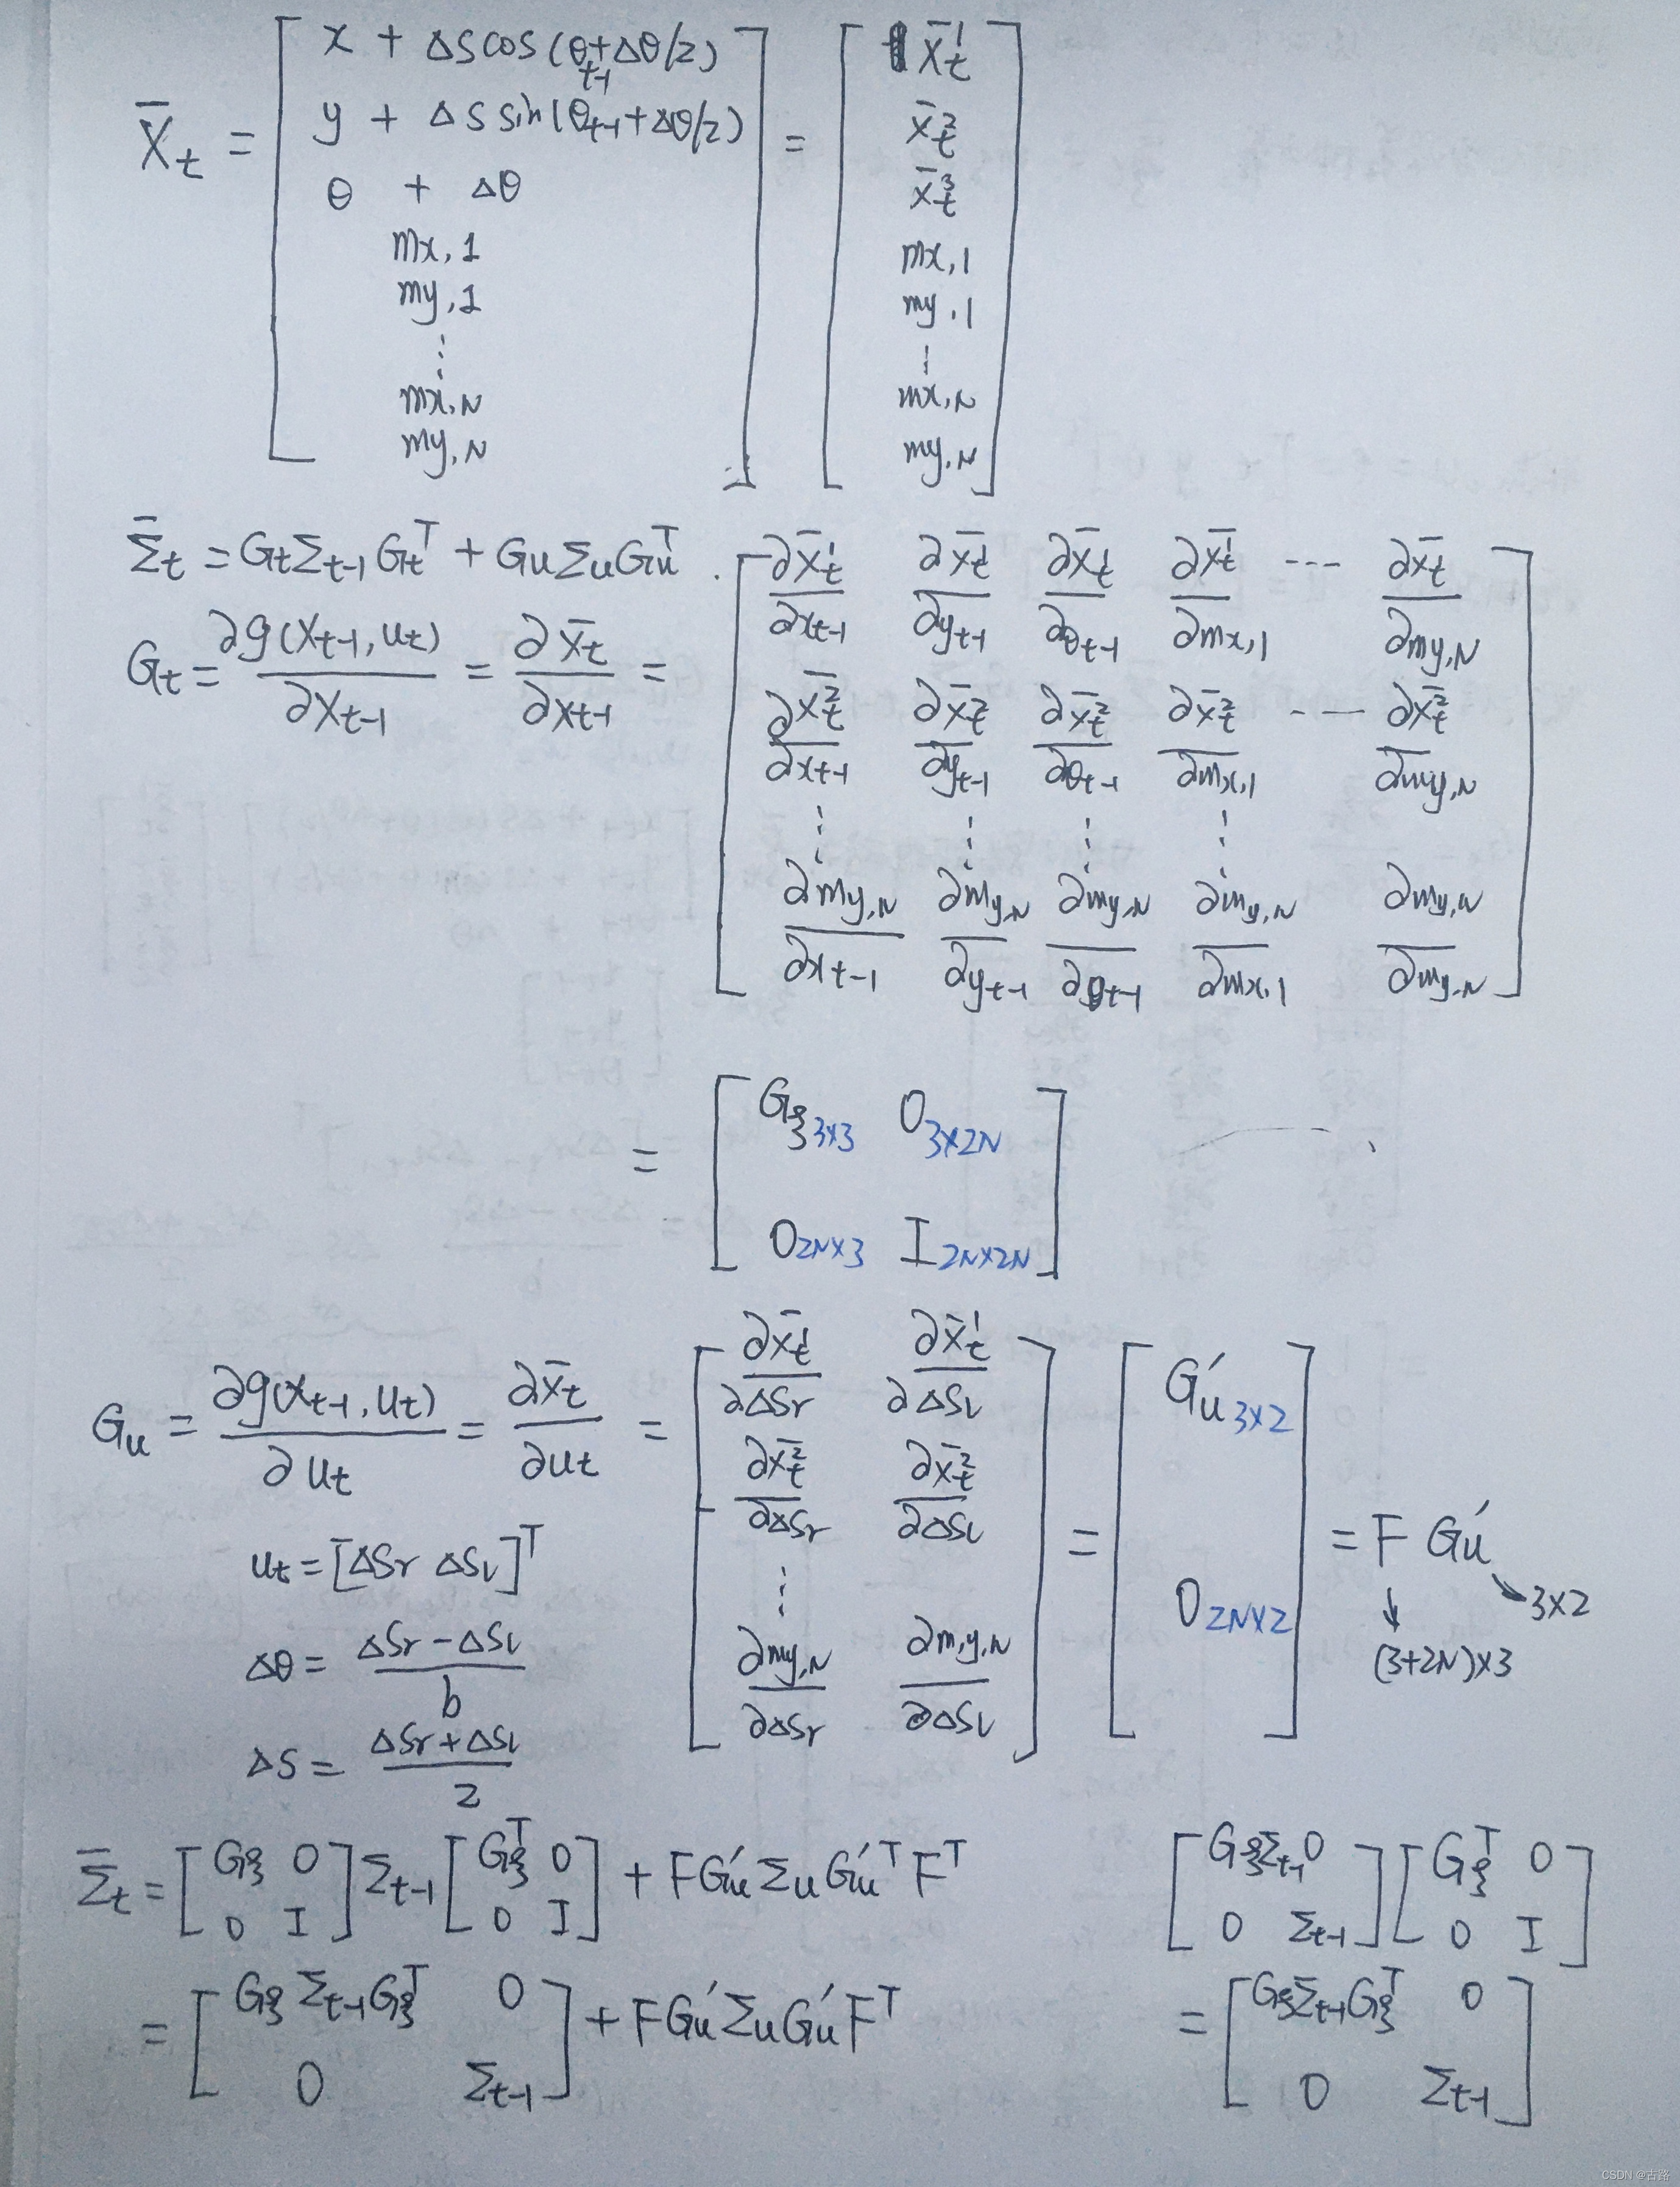 X̄t = [ x + ΔS cos(θt-1 + Δθ/2) ; y + ΔS sin(θt-1 + Δθ/2) ; θ + Δθ ; mx,1 ; my,1 ; ⋮ ; mx,N ; my,N ] = [ x̄t¹ ; x̄t² ; x̄t³ ; mx,1 ; my,1 ; ⋮ ; mx,N ; my,N ]
Σ̄t = Gt Σt-1 Gtᵀ + Gu Σu Guᵀ .
Gt = ∂g(Xt-1, ut)/∂Xt-1 = ∂x̄t/∂xt-1 = [ ∂x̄t¹/∂xt-1 ∂x̄t¹/∂yt-1 ∂x̄t¹/∂θt-1 ∂x̄t¹/∂mx,1 --- ∂x̄t/∂my,N ;
∂x̄t²/∂xt-1 ∂x̄t²/∂yt-1 ∂x̄t²/∂θt-1 ∂x̄t²/∂mx,1 --- ∂x̄t²/∂my,N ;
⋮ ⋮ ⋮ ⋮
∂my,N/∂xt-1 ∂my,N/∂yt-1 ∂my,N/∂θt-1 ∂my,N/∂mx,1 ∂my,N/∂my,N ]
= [ Gξ 3×3 0 3×2N ; 0 2N×3 I 2N×2N ]
Gu = ∂g(xt-1, ut)/∂ut = ∂x̄t/∂ut = [ ∂x̄t¹/∂ΔSr ∂x̄t¹/∂ΔSl ; ∂x̄t²/∂ΔSr ∂x̄t²/∂ΔSl ; ⋮ ; ∂my,N/∂ΔSr ∂m,y,N/∂ΔSl ] = [ Gu′ 3×2 ; 0 2N×2 ] = F Gu′
(3+2N)×3
3×2
ut = [ΔSr ΔSl]ᵀ
Δθ = (ΔSr − ΔSl)/b
ΔS = (ΔSr + ΔSl)/2
Σ̄t = [ Gξ 0 ; 0 I ] Σt-1 [ Gξᵀ 0 ; 0 I ] + F Gu′ Σu Gu′ᵀ Fᵀ
= [ Gξ Σt-1 Gξᵀ 0 ; 0 Σt-1 ] + F Gu′ Σu Gu′ Fᵀ
[ Gξ Σt-1 0 ; 0 Σt-1 ] [ Gξᵀ 0 ; 0 I ]
= [ Gξ Σt-1 Gξᵀ 0 ; 0 Σt-1 ]
CSDN @古路